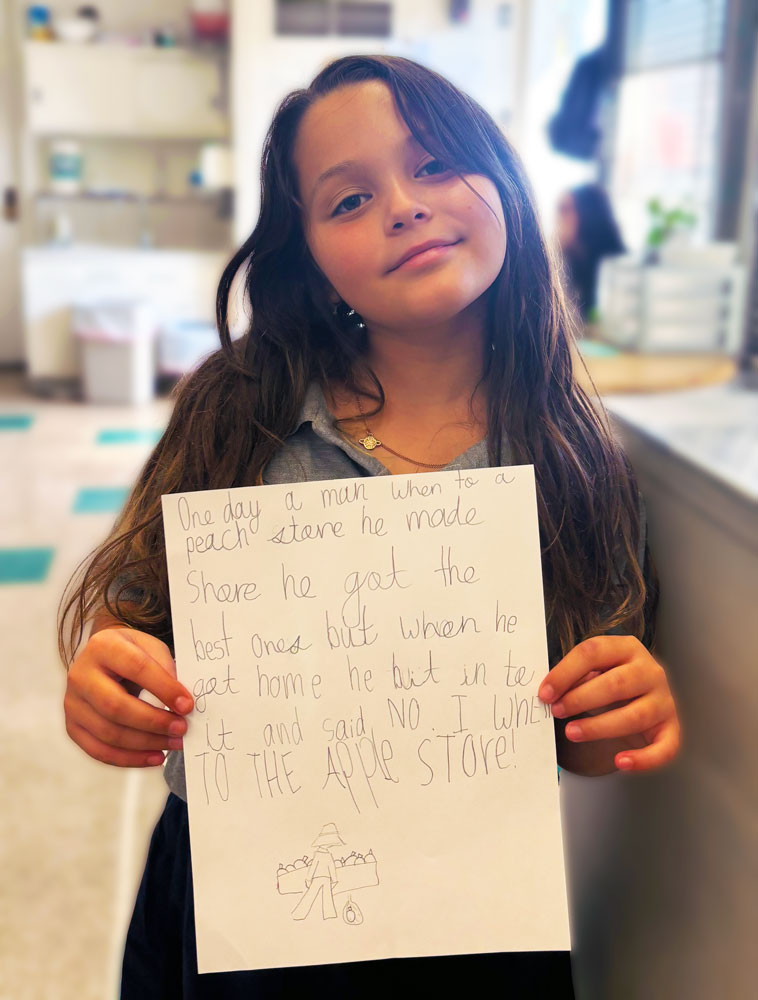 One day a man when to a
peach store he made
Shore he got the
best ones but when he
got home he bit in to
it and said NO. I WHEN
TO THE APPle STORe!